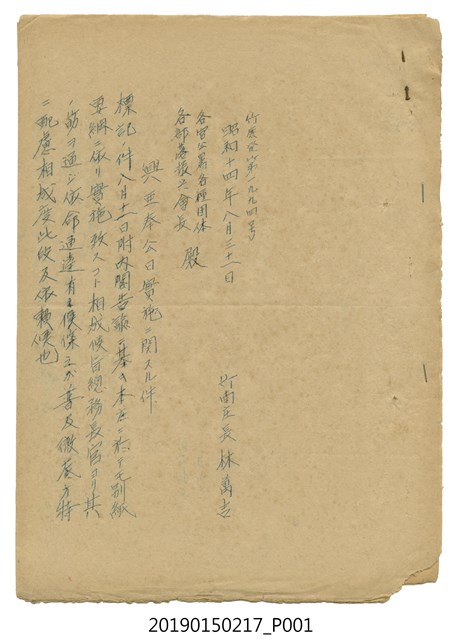 竹庶第一九九四号
昭和十四年八月三十一日
各官公署各種団体
各部落振興會長 殿
竹南庄長 林為吉
興亜奉公日實施ニ関スル件
標記ノ件八月十一日附内閣告諭ニ基キ本庄ニ於テモ別紙
要綱ニ依リ實施致スコト相成候旨總務長官ヨリ共
ノ筋ヲ通ジ依命通達有之候條之ガ普及徹底方特
ニ配慮相成度此段及依頼候也
20190150217_P001